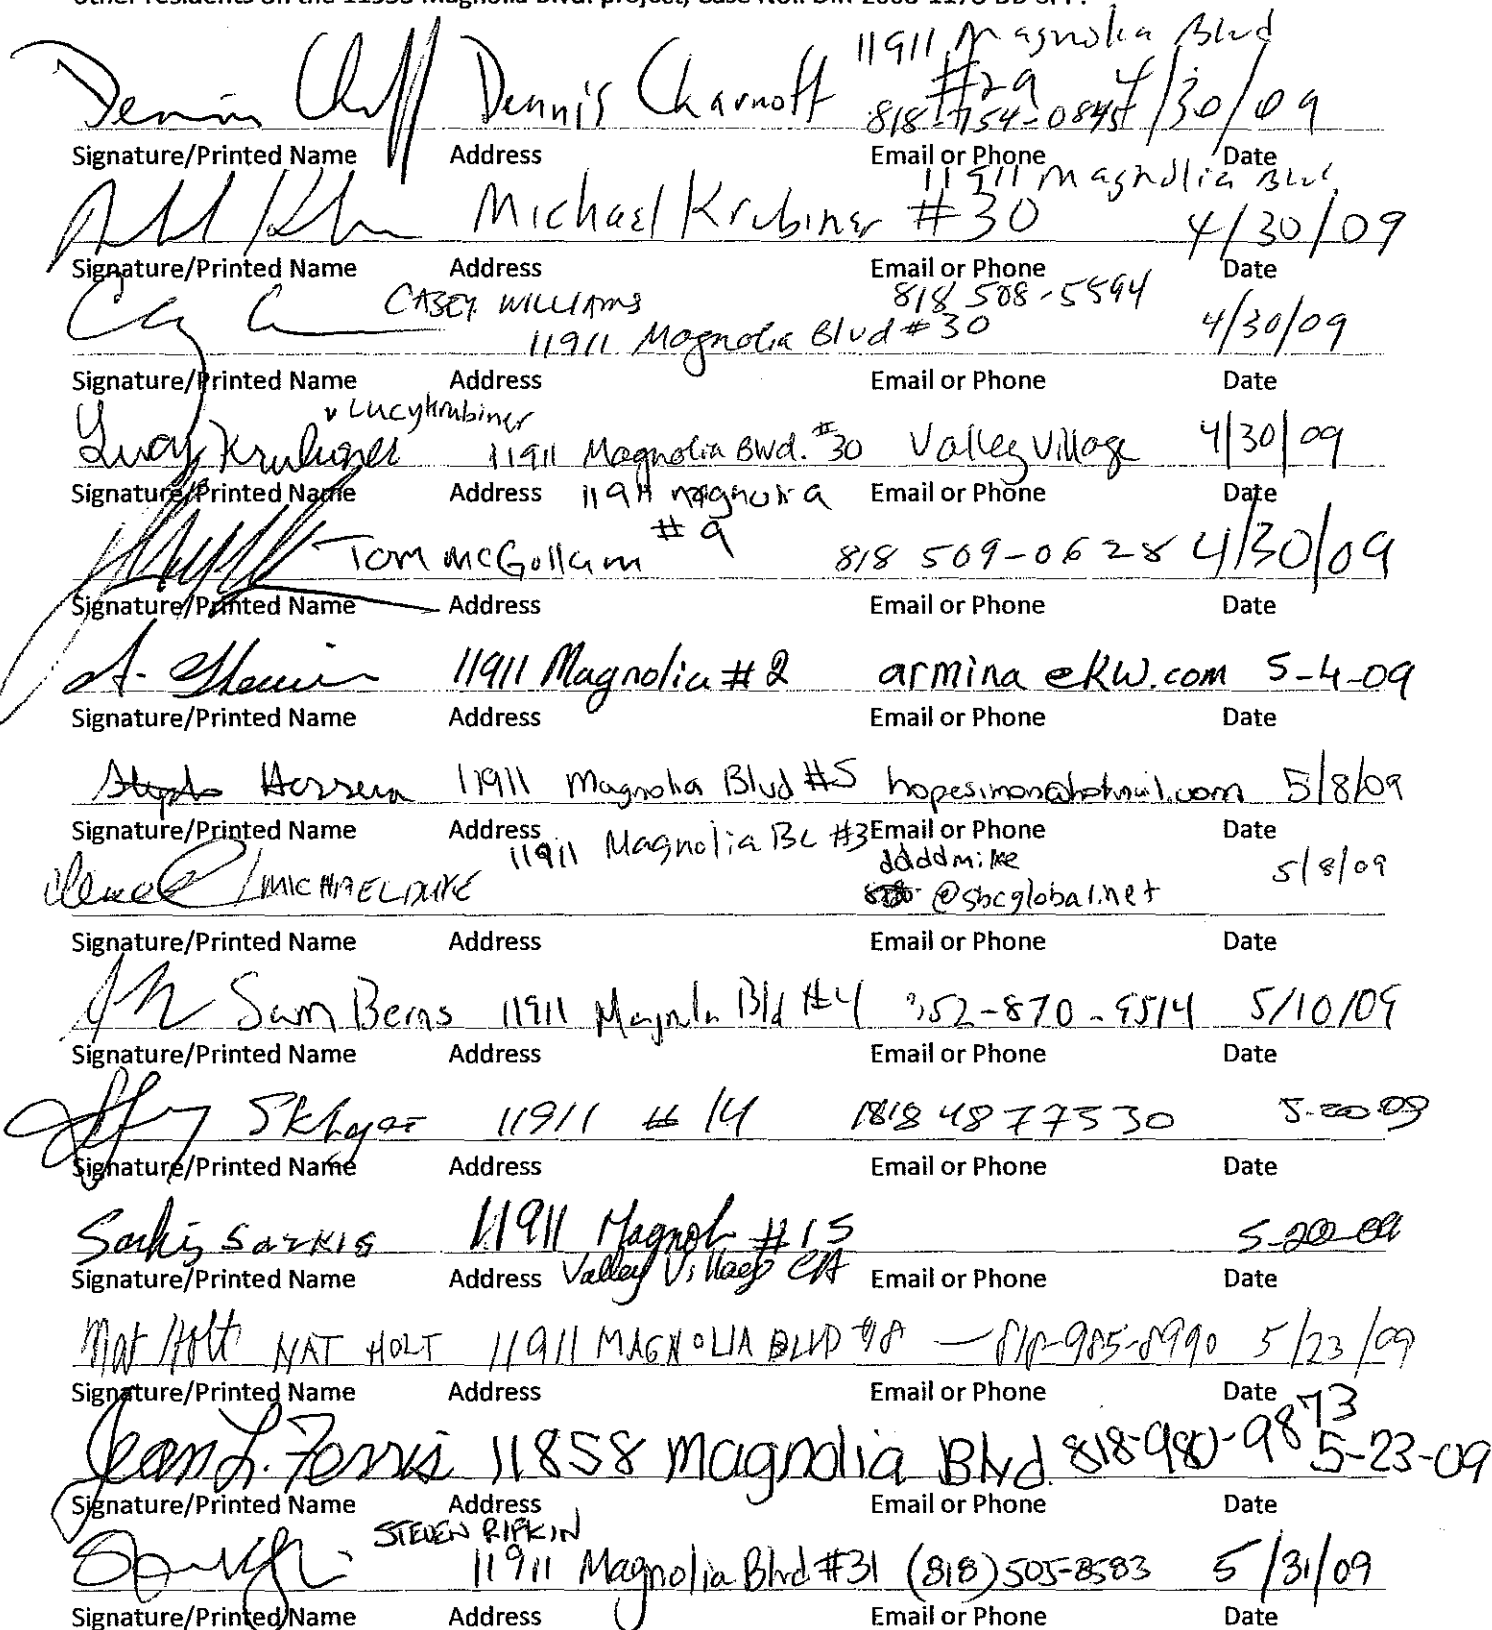 other residents on the 11933 Magnolia Blvd. project, Case No.: DIR-2008-1178 DB SPP.
11911 Magnolia Blvd
Dennis Charnoff #29 4/30/09
818-754-0845
Signature/Printed Name Address Email or Phone Date
11911 Magnolia Blvd
Michael Krubiner #30 4/30/09
Signature/Printed Name Address Email or Phone Date
CASEY WILLIAMS 818 508-5594
11911 Magnolia Blvd #30 4/30/09
Signature/Printed Name Address Email or Phone Date
Lucy Krubiner
Lucy Krubiner 11911 Magnolia Blvd. #30 Valley Village 4/30/09
Signature/Printed Name Address Email or Phone Date
11911 magnolia
#9
Tom McGollam 818 509-0628 4/30/09
Signature/Printed Name Address Email or Phone Date
11911 Magnolia #2 armina @KW.com 5-4-09
Signature/Printed Name Address Email or Phone Date
Herrera 11911 Magnolia Blvd #5 hopesimon@hotmail.com 5/8/09
Signature/Printed Name Address Email or Phone Date
11911 Magnolia BL #3
ddddmike 5/8/09
MICHAEL DUKE @sbcglobal.net
Signature/Printed Name Address Email or Phone Date
Sam Berns 11911 Magnolia Bld #4 352-870-9514 5/10/09
Signature/Printed Name Address Email or Phone Date
11911 #14 818 4877530 5-20-09
Signature/Printed Name Address Email or Phone Date
Sarkis Sarkis 11911 Magnol #15 5-20-09
Signature/Printed Name Address Valley Village CA Email or Phone Date
Nat Holt NAT HOLT 11911 MAGNOLIA BLVD #8 — 818-985-8990 5/23/09
Signature/Printed Name Address Email or Phone Date
Jean L. Ferris 11858 Magnolia Blvd. 818-980-9873 5-23-09
Signature/Printed Name Address Email or Phone Date
STEVEN RIFKIN
11911 Magnolia Blvd #31 (818)505-8583 5/31/09
Signature/Printed Name Address Email or Phone Date